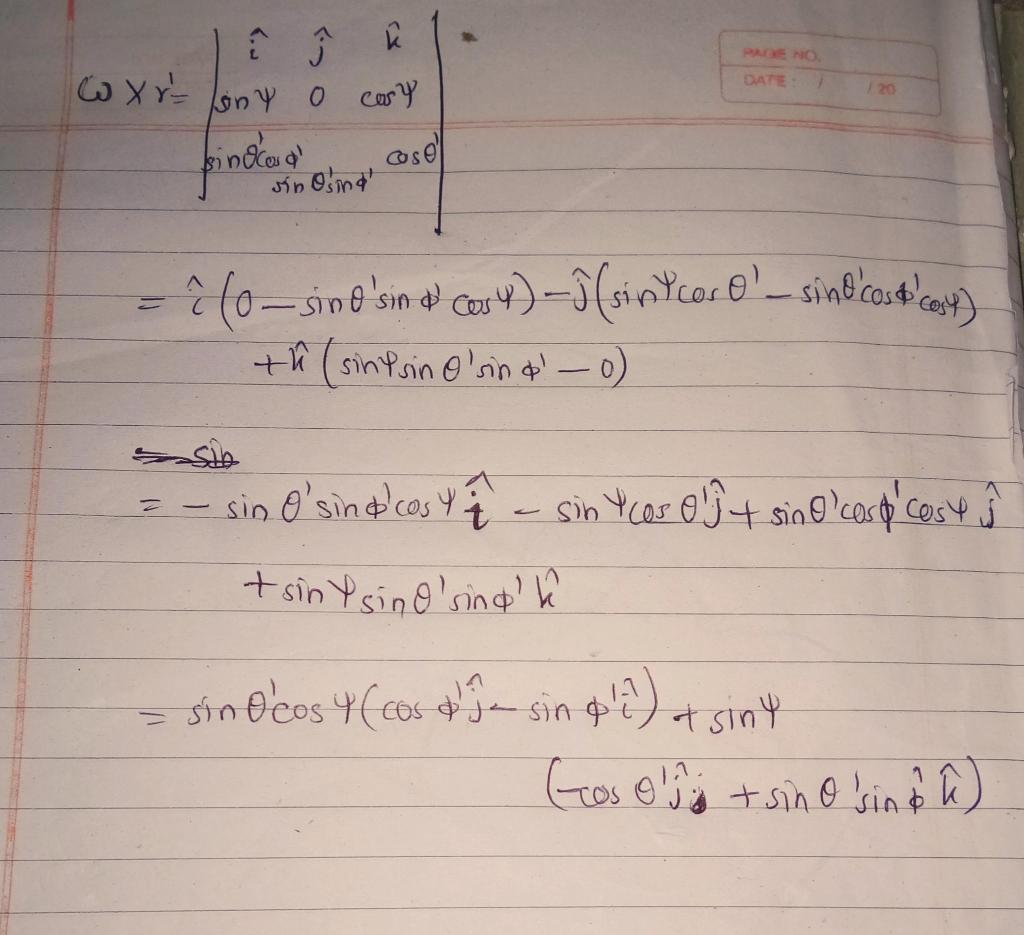 PAGE NO.
DATE: / / 20
î ĵ k̂
ω × r' = sinψ 0 cosψ
sinθ'cosφ' sinθ'sinφ' cosθ'
= î (0 – sinθ'sinφ' cosψ) – ĵ (sinψcosθ' – sinθ'cosφ'cosψ)
+ k̂ (sinψsinθ'sinφ' – 0)
= – sinθ'sinφ'cosψ î – sinψcosθ'ĵ + sinθ'cosφ'cosψ ĵ
+ sinψsinθ'sinφ' k̂
= sinθ'cosψ(cosφ'ĵ – sinφ'î) + sinψ
(–cosθ'ĵ + sinθ'sinφ' k̂)